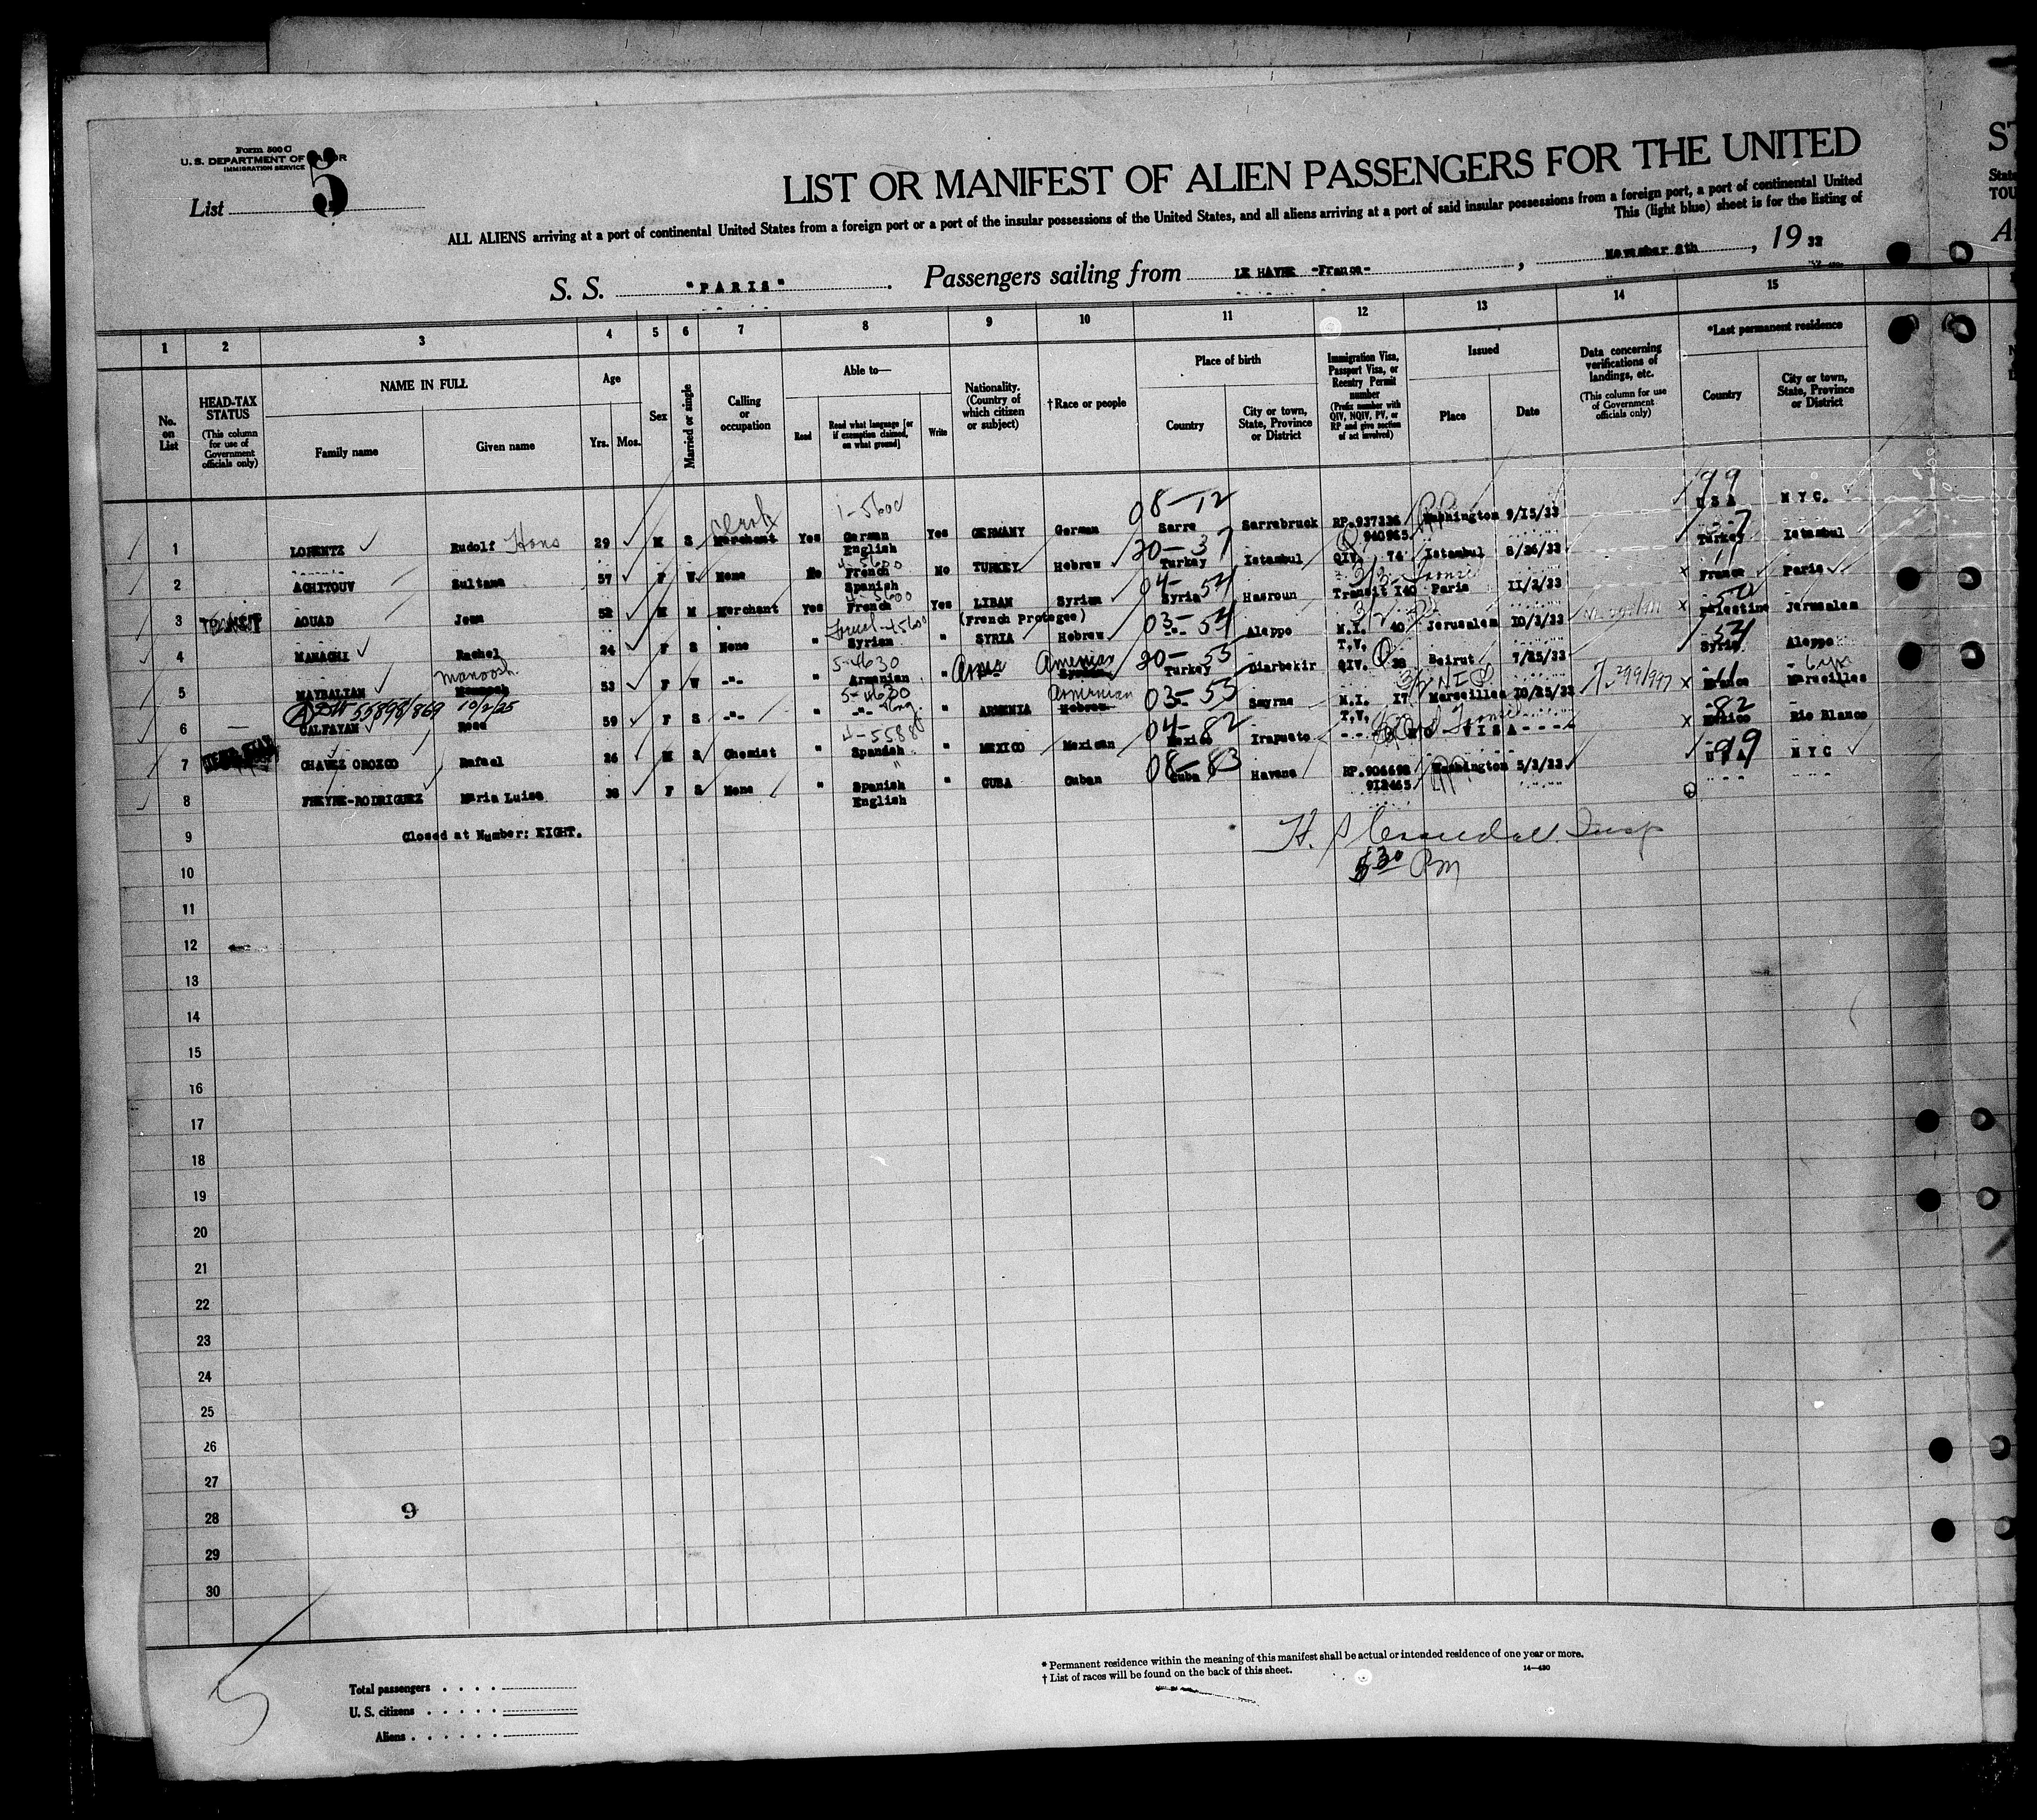 Form 500 C
U. S. DEPARTMENT OF LABOR
IMMIGRATION SERVICE
List 5
LIST OR MANIFEST OF ALIEN PASSENGERS FOR THE UNITED
ALL ALIENS arriving at a port of continental United States from a foreign port or a port of the insular possessions of the United States, and all aliens arriving at a port of said insular possessions from a foreign port, a port of continental United
This (light blue) sheet is for the listing of
S. S. "PARIS" . Passengers sailing from LE HAVRE -France- , November 8th , 19 33
1 2 3 4 5 6 7 8 9 10 11 12 13 14 15
No. on List
HEAD-TAX STATUS (This column for use of Government officials only)
NAME IN FULL Family name Given name
Age Yrs. Mos.
Sex
Married or single
Calling or occupation
Able to— Read Read what language [or if exemption claimed, on what ground] Write
Nationality. (Country of which citizen or subject)
† Race or people
Place of birth Country City or town, State, Province or District
Immigration Visa, Passport Visa, or Reentry Permit number (Prefix number with QIV, NQIV, PV, or RP and give section of act involved)
Issued Place Date
Data concerning verifications of landings, etc. (This column for use of Government officials only)
*Last permanent residence Country City or town, State, Province or District
1-5600 08-12 99
1 LORENTZ Rudolf Hans 29 M S Clerk Merchant Yes German English Yes GERMANY German Sarre Sarrebruck RP.937336 940965 Washington 9/15/33 USA N Y C.
20-37 37
2 AGHITOUV Sultana 57 F W None No French Spanish No TURKEY Hebrew Turkey Istambul QIV. 74 Istambul 8/26/33 Turkey Istambul
04-54
3 TRANSIT AOUAD Jean 52 M M Merchant Yes French Yes LIBAN (French Protegee) Syrian Syria Hasroun Transit 140 Paris 11/2/33 x France Paris
03-54 50
4 MANACHI Rachel 24 F S None " Syrian " SYRIA Hebrew -"- Aleppo N.I. 40 T.V. Jerusalem 10/3/33 x Palestine Jerusalem
5-4630 20-53 54
5 MAYBALIAN Manoosh 53 F W -"- " Armenian " Armenian Turkey Diarbekir QIV. 28 Beirut 7/25/33 Syria Aleppo
55898/869 10/2/25 5-4630 Armenian 03-53 11
6 CALFAYAN Rose 59 F S -"- " -"- " ARMENIA Hebrew Smyrne N.I. 17 T.V. Marseilles 10/25/33 x France Marseilles
4-5588 04-82 82
7 CHAVEZ OROZCO Rafael 26 M S Chemist " Spanish " MEXICO Mexican Mexico Irapuato NO VISA x Mexico Rio Blanco
08-83 99
8 FREYRE-RODRIGUEZ Maria Luisa 38 F S None " Spanish English " CUBA Cuban Cuba Havana RP.906698 912465 Washington 5/3/33 U S A N Y C
9 Closed at Number: EIGHT.
5 30 Pm
10
11
12
13
14
15
16
17
18
19
20
21
22
23
24
25
26
27
9
28
29
30
5
* Permanent residence within the meaning of this manifest shall be actual or intended residence of one year or more.
† List of races will be found on the back of this sheet. 14—430
Total passengers
U. S. citizens
Aliens